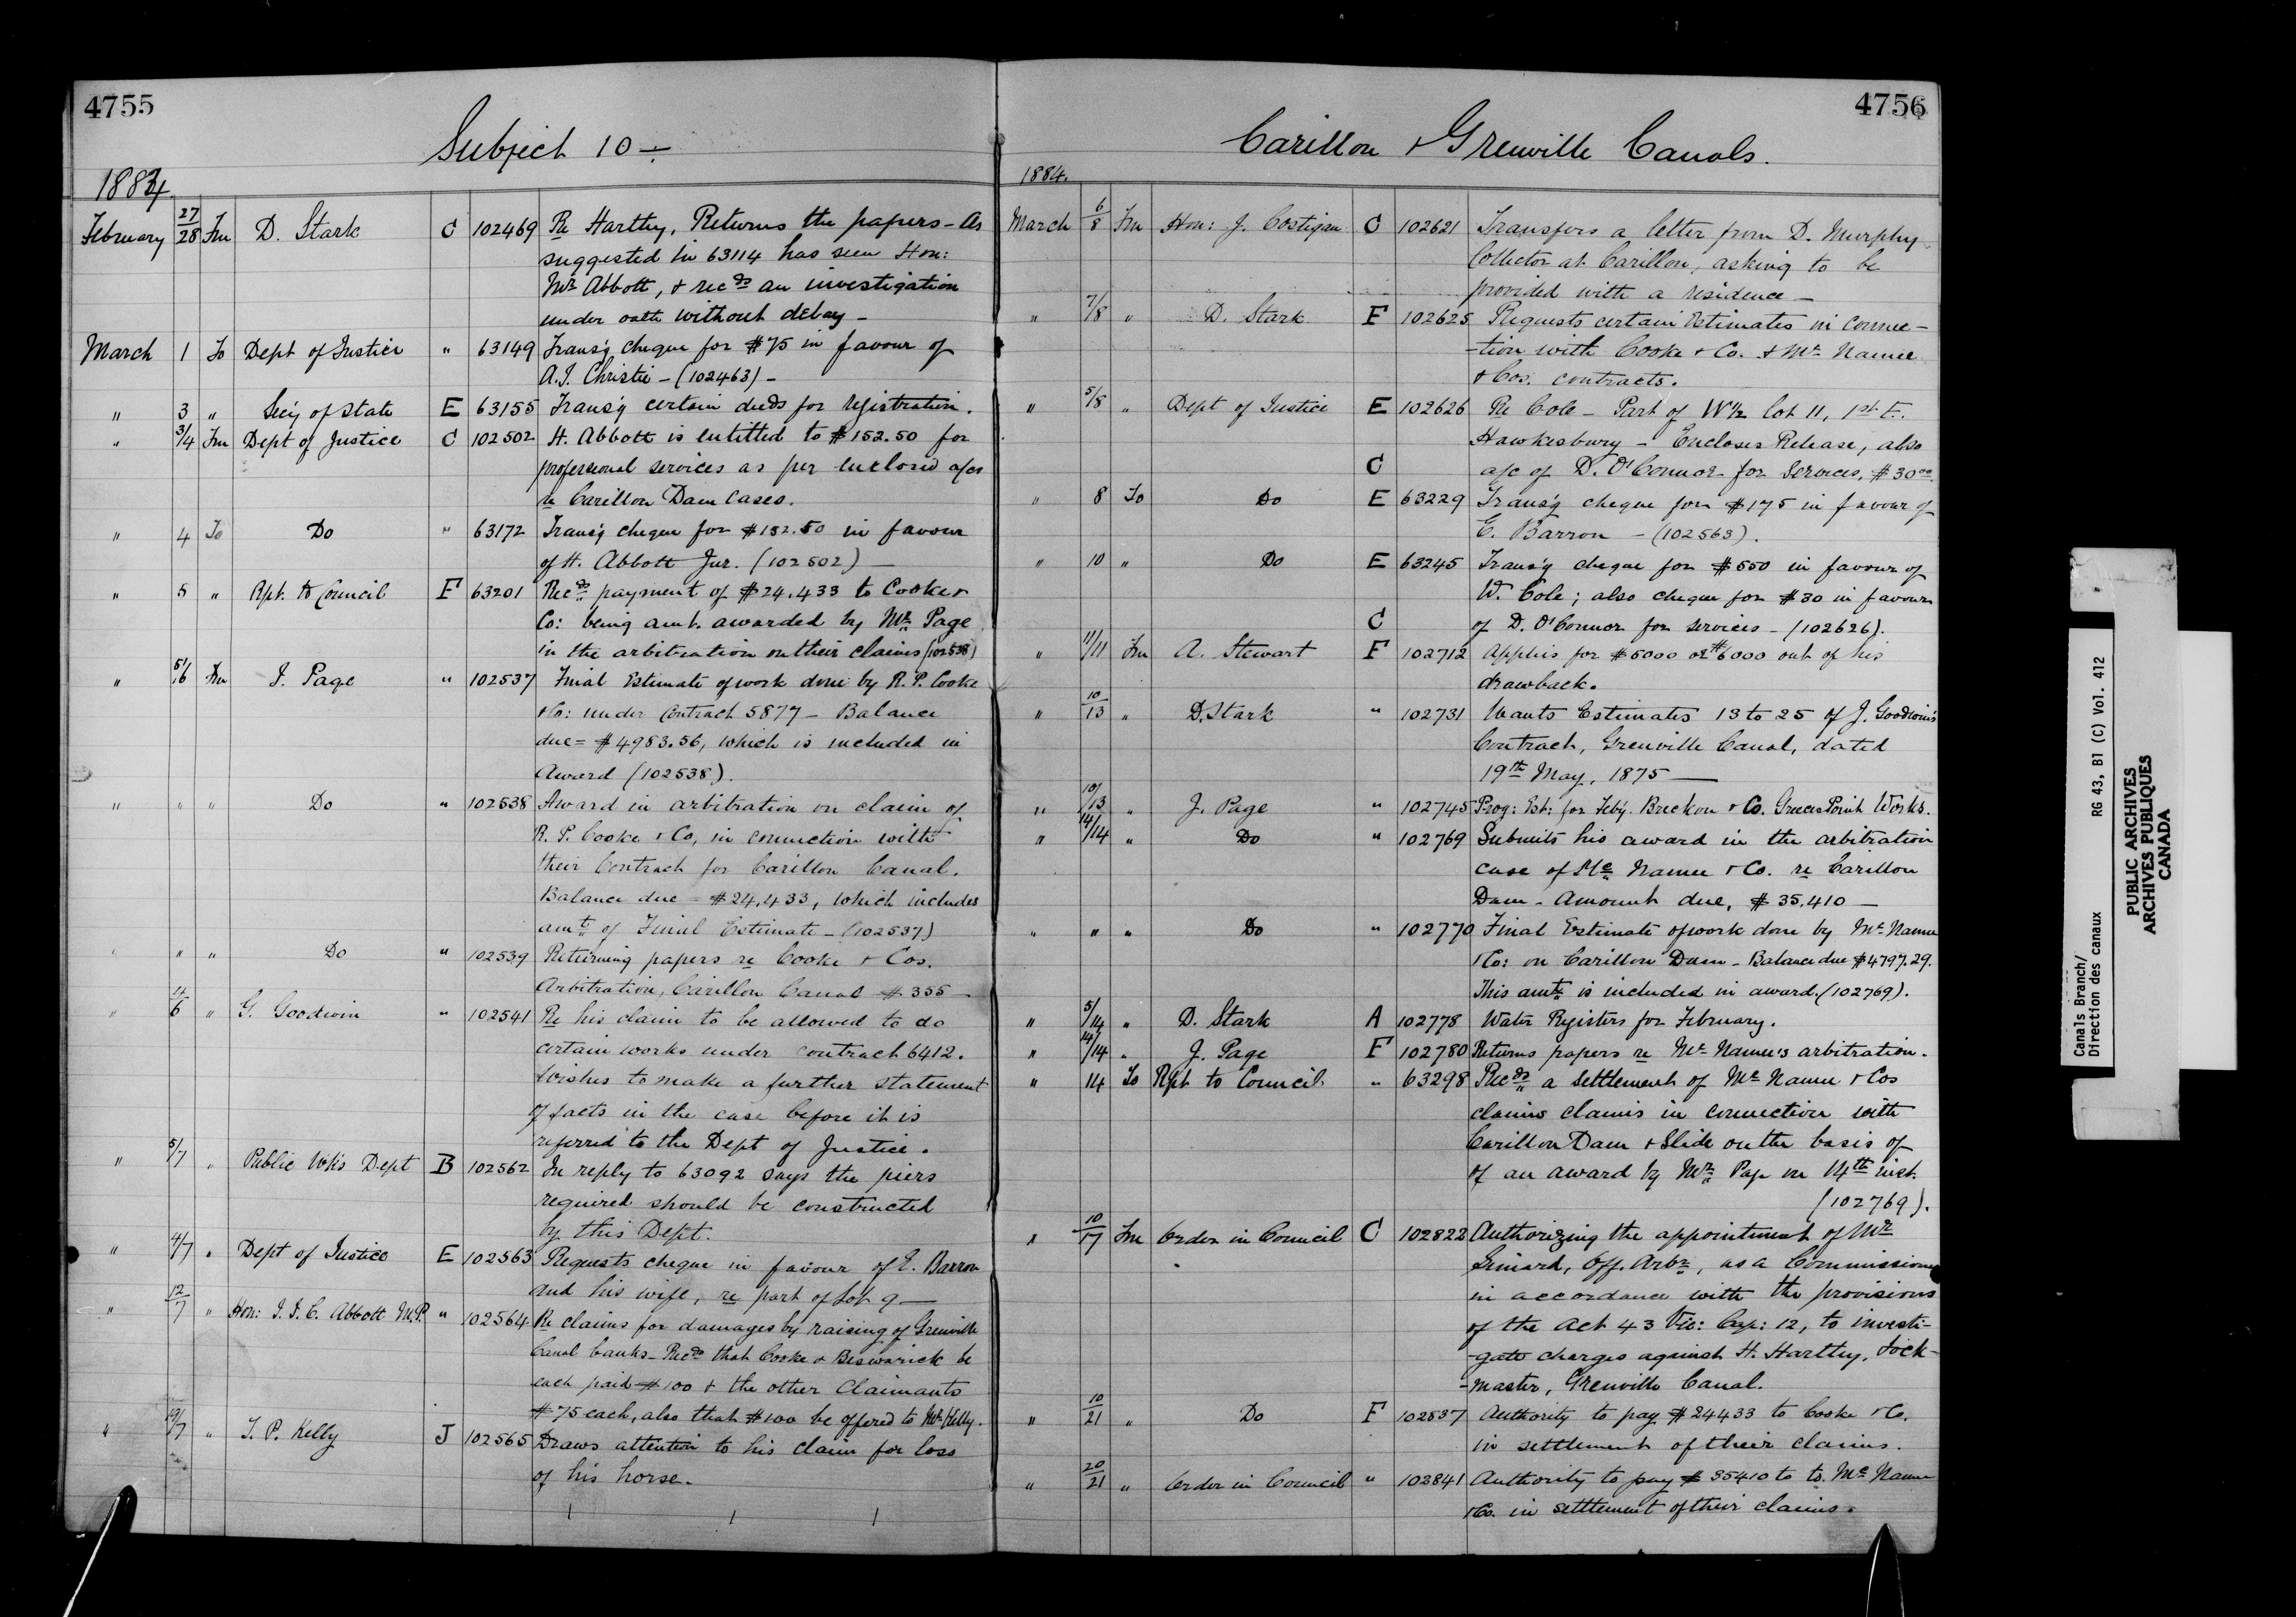 4755
Subject 10 —
1884
February 27/28 Fm D. Stark C 102469 Re Harthy, Returns the papers - As
suggested in 63114 has seen Hon:
Mr. Abbott, & recds an investigation
under oath without delay -
March 1 To Dept of Justice " 63149 Trans'g cheque for $75 in favour of
A.J. Christie - (102463) -
" 3 " Sec'y of State E 63155 Trans'g certain deeds for registration.
" 3/4 Fm Dept of Justice C 102502 H. Abbott is entitled to $152.50 for
professional services as per enclosed a/cs
re Carillon Dam cases.
" 4 To Do " 63172 Trans'g cheque for $152.50 in favour
of H. Abbott Jur. (102502) —
" 5 " Rpt. to Council F 63201 Recds payment of $24.433 to Cooke &
Co: being amt. awarded by Mr. Page
in the arbitration on their claims (102538)
" 5/6 Fm J. Page " 102537 Final Estimate of work done by R.P. Cooke
& Co: under contract 5877 - Balance
due = $4983.56, which is included in
Award (102538).
" " " Do " 102538 Award in arbitration on claim of
R. P. Cooke & Co, in connection with
their Contract for Carillon Canal.
Balance due = $24,433, which includes
amt. of Final Estimate - (102537)
" " " Do " 102539 Returning papers re Cooke & Cos.
Arbitration, Carillon Canal $355 -
" 4/6 " G. Goodwin " 102541 Re his claim to be allowed to do
certain works under contract 6412.
Wishes to make a further statement
of facts in the case before it is
referred to the Dept of Justice.
" 5/7 " Public Wks Dept B 102562 In reply to 63092 says the piers
required should be constructed
by this Dept.
" 4/7 " Dept of Justice E 102563 Requests cheque in favour of E. Barron
and his wife, re part of Lot 9 —
" 12/7 " Hon: J. J. C. Abbott M.P. " 102564 Re claims for damages by raising of Grenville
Canal banks - Recds that Cooke & Beswarick be
each paid $100 & the other Claimants
$75 each, also that $100 be offered to Mr. Kelly.
" 19/7 " T. P. Kelly J 102565 Draws attention to his claim for loss
of his horse.
4756
Carillon & Grenville Canals.
1884.
March 6/8 Fm Hon: J. Costigan C 102621 Transfers a letter from D. Murphy
Collector at Carillon, asking to be
provided with a residence -
" 7/8 " D. Stark F 102625 Requests certain Estimates in connec-
-tion with Cooke & Co. & Mc Namee
& Cos. contracts.
" 5/8 " Dept of Justice E 102626 Re Cole - Part of W 1/2 lot 11, 1st E.
Hawkesbury - Encloses Release, also
C a/c of D. O'Connor for services, $30.00
" 8 To Do E 63229 Trans'g cheque for $175 in favour of
E. Barron - (102563).
" 10 " Do E 63245 Trans'g cheque for $550 in favour of
W. Cole; also cheque for $30 in favour
C of D. O'Connor for services - (102626).
" 11/11 Fm A. Stewart F 102712 Applies for $5000 or $6000 out of his
drawback.
" 10/13 " D. Stark " 102731 Wants Estimates 13 to 25 of J. Goodwin's
Contract, Grenville Canal, dated
19th May, 1875 —
" 10/13 " J. Page " 102745 Prog: Est: for Feby. Breckon & Co. Greece Point Works.
" 14/14 " Do " 102769 Submits his award in the arbitration
case of Mc Namee & Co. re Carillon
Dam - Amount due, $35,410 -
" " " Do " 102770 Final Estimate of work done by Mc Namee
& Co: on Carillon Dam - Balance due $4797.29.
This amt. is included in award. (102769).
" 5/14 " D. Stark A 102778 Water Registers for February.
" 14/14 " J. Page F 102780 Returns papers re Mc Namee's arbitration.
" 14 To Rpt to Council " 63298 Recds a settlement of Mc Namee & Cos
claims claims in connection with
Carillon Dam & Slide on the basis of
of an award by Mr. Page on 14th inst.
(102769).
" 10/17 Fm Order in Council C 102822 Authorizing the appointment of Mr.
Simard, Off. Arbr., as a Commissioner
in accordance with the provisions
of the Act 43 Vic: Cap: 12, to investi-
-gate charges against H. Harthy, Lock-
-master, Grenville Canal.
" 10/21 " Do F 102837 Authority to pay $24433 to Cooke & Co.
in settlement of their claims.
" 20/21 " Order in Council " 102841 Authority to pay $35410 to to Mc Namee
& Co. in settlement of their claims.
Canals Branch/
Direction des canaux RG 43, B1 (C) Vol. 412
PUBLIC ARCHIVES
ARCHIVES PUBLIQUES
CANADA